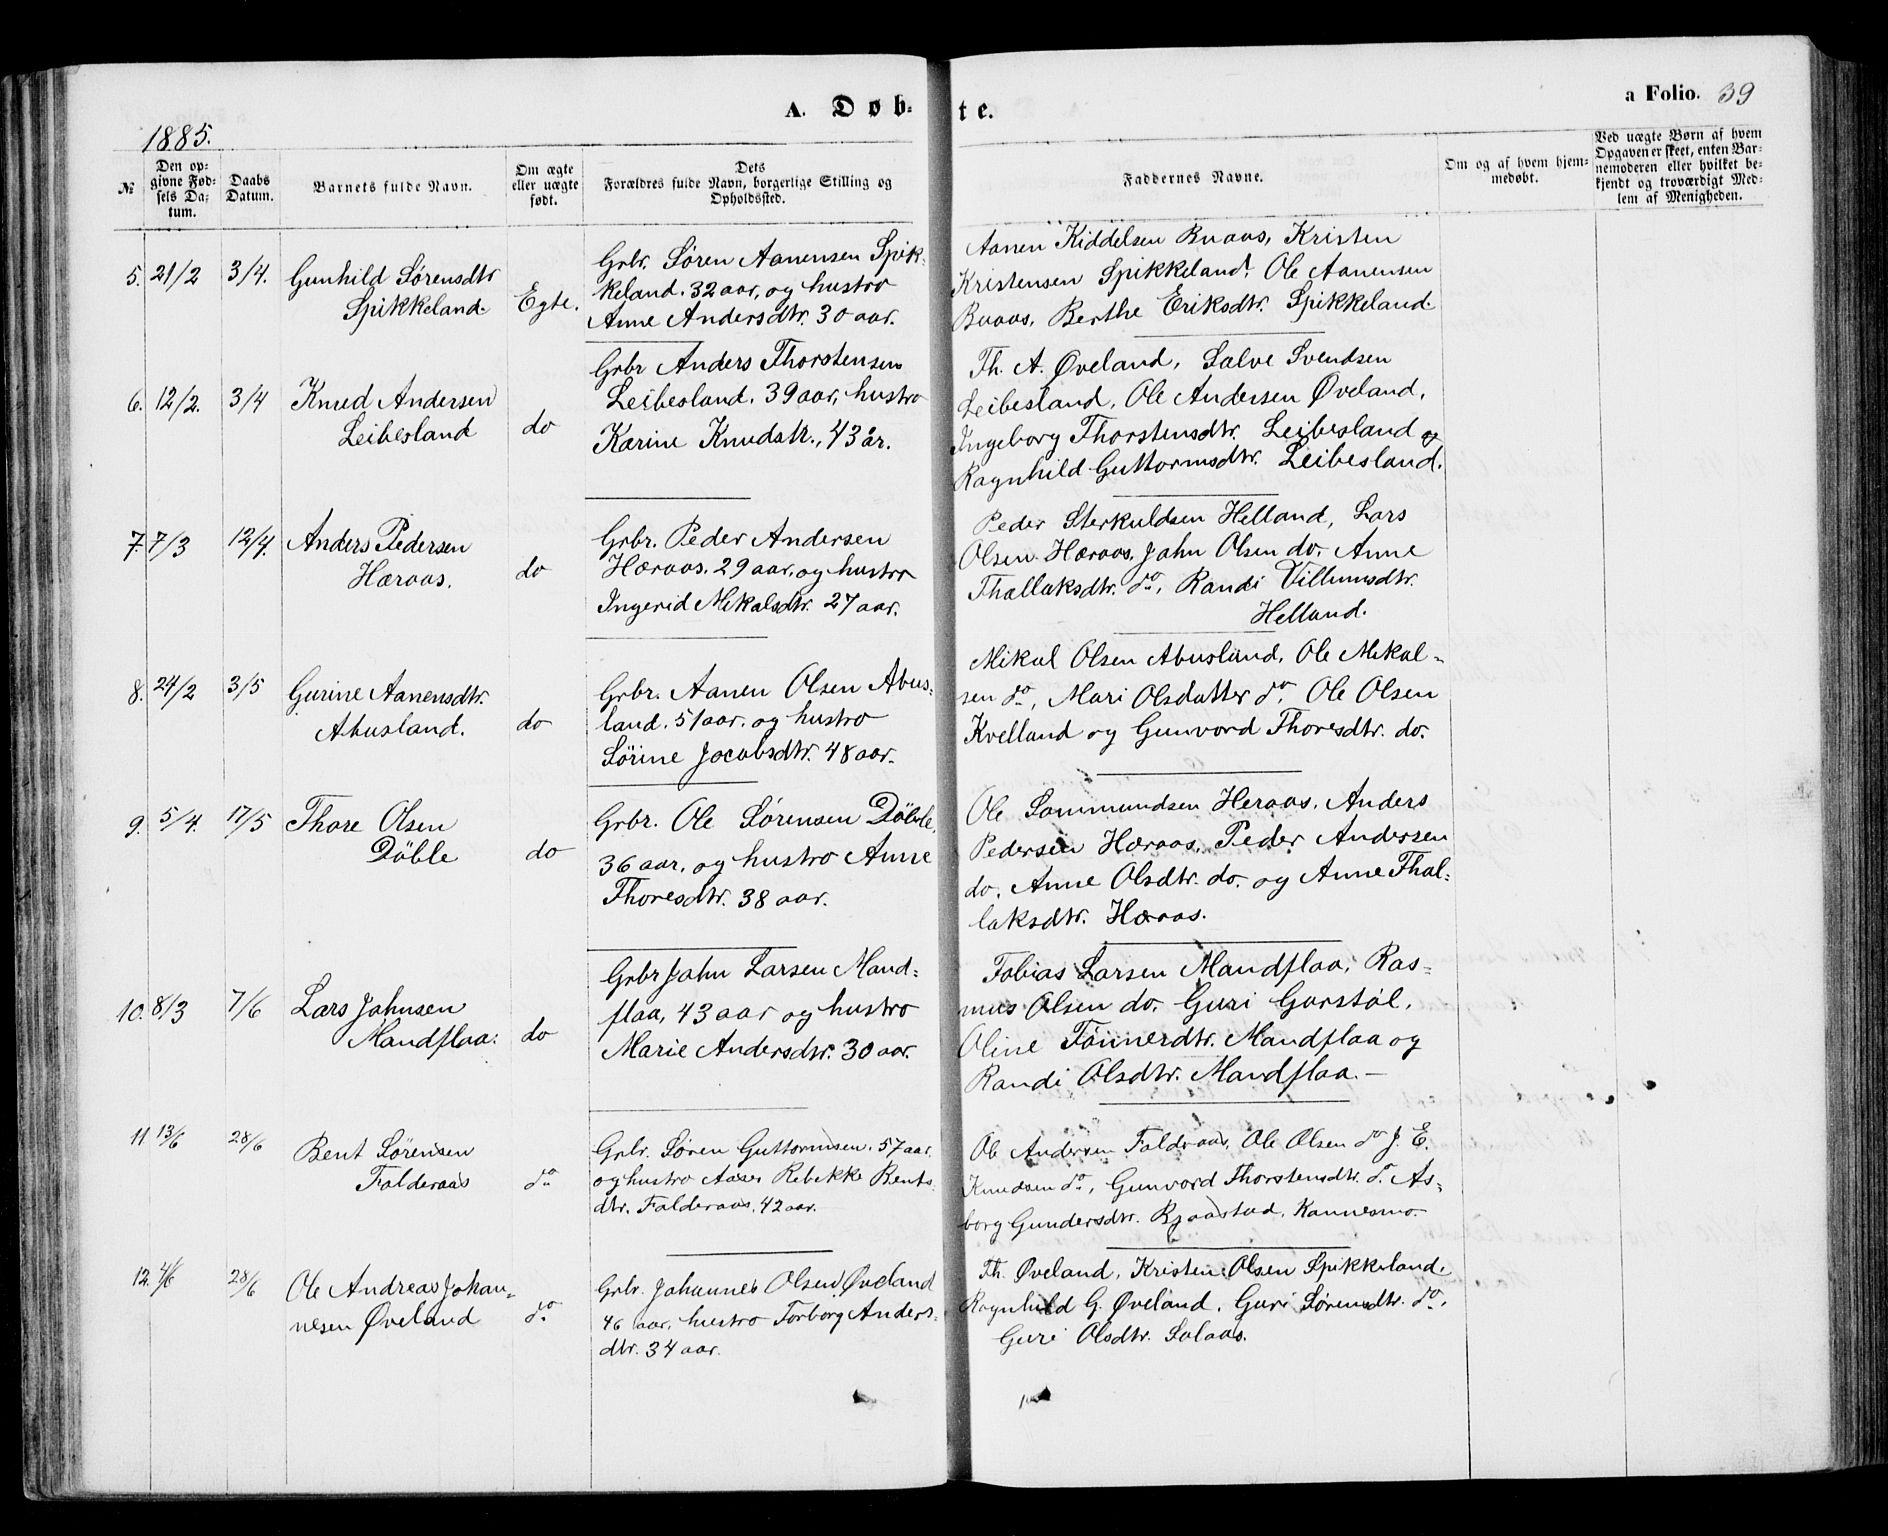 A. Døb-
te.
a Folio. 39
1885.
№
Den op-
givne Fød-
sels Da-
tum.
Daabs
Datum.
Barnets fulde Navn.
Om ægte
eller uægte
født.
Dets
Forældres fulde Navn, borgerlige Stilling og
Opholdssted.
Faddernes Navne.
Om og af hvem hjem-
medøbt.
Ved uægte Børn af hvem
Opgaven er skeet, enten Bar-
nemoderen eller hvilket be-
kjendt og troværdigt Med-
lem af Menigheden.
5. 21/2 3/4. Gunhild Sørensdtr
Spikkeland.
Egte.
Grbr. Søren Aanensen Spik-
keland. 32 aar, og hustro
Anne Andersdtr. 30 aar.
Aanen Kiddelsen Buaas, Kristen
Kristensen Spikkeland, Ole Aanensen
Buaas, Berthe Eriksdtr. Spikkeland.
6. 12/2. 3/4 Knud Andersen
Leibesland
do
Grbr Anders Thorstensen
Leibesland. 39 aar, hustro
Karine Knudstr., 43 år.
Th. A. Øveland, Salve Svendsen
Leibesland, Ole Andersen Øveland,
Ingeborg Thorstensdtr. Leibesland og
Ragnhild Guttormsdtr. Leibesland.
7. 7/3 12/4. Anders Pedersen
Hæraas.
do
Grbr. Peder Andersen
Hæraas. 29 aar, og hustro
Ingerid Mikalsdtr. 27 aar.
Peder Sterkuldsen Helland, Lars
Olsen Hæraas, Jahn Olsen do, Anne
Thallaksdtr. do, Randi Villumsdtr.
Helland.
8. 24/2 3/5 Gurine Aanensdtr.
Abusland.
do
Grbr. Aanen Olsen Abus-
land. 51 aar. og hustro
Sørine Jacobsdtr. 48 aar.
Mikal Olsen Abusland, Ole Mikal-
sen do, Mari Olsdatter do, Ole Olsen
Kvelland og Gunvord Thoresdtr. do.
9. 5/4. 17/5 Thore Olsen
Döble
do
Grbr. Ole Sørensen Döble,
36 aar, og hustro Anne
Thoresdtr. 38 aar.
Ole Sammundsen Heraas, Anders
Pedersen Hæraas, Peder Andersen
do. Anne Olsdtr. do. og Anne Thal-
laksdtr. Hæraas.
10. 8/3 7/6 Lars Jahnsen
Mandflaa.
do
Grbr Jahn Larsen Mand-
flaa, 43 aar og hustro
Marie Andersdtr. 30 aar.
Tobias Larsen Mandflaa, Ras-
mus Olsen do. Guri Garstøl,
Oline Tønnerdtr. Mandflaa og
Randi Olsdtr. Mandflaa. —
11 13/6 28/6 Bent Sørensen
Falderaas
do
Grbr. Søren Guttormsen. 57 aar.
og hustro Aaser Rebekke Bents-
dtr. Falderaas. 42 aar.
Ole Andersen Falderaas, Ole Olsen do J. E.
Knudsen do, Gunvord Thorstensdtr. do As-
borg Gundersdtr. Rjaastad, Kannesmo.
12. 4/6 28/6 Ole Andreas Johan-
nesen Øveland
do
Grbr. Johannes Olsen Øveland
46 aar, hustro Torborg Anders-
dtr. 34 aar.
Th. Øveland, Kristen Olsen Spikkeland
Ragnhild G. Øveland, Guri Sørensdtr. do,
Guri Olsdtr. Solaas.